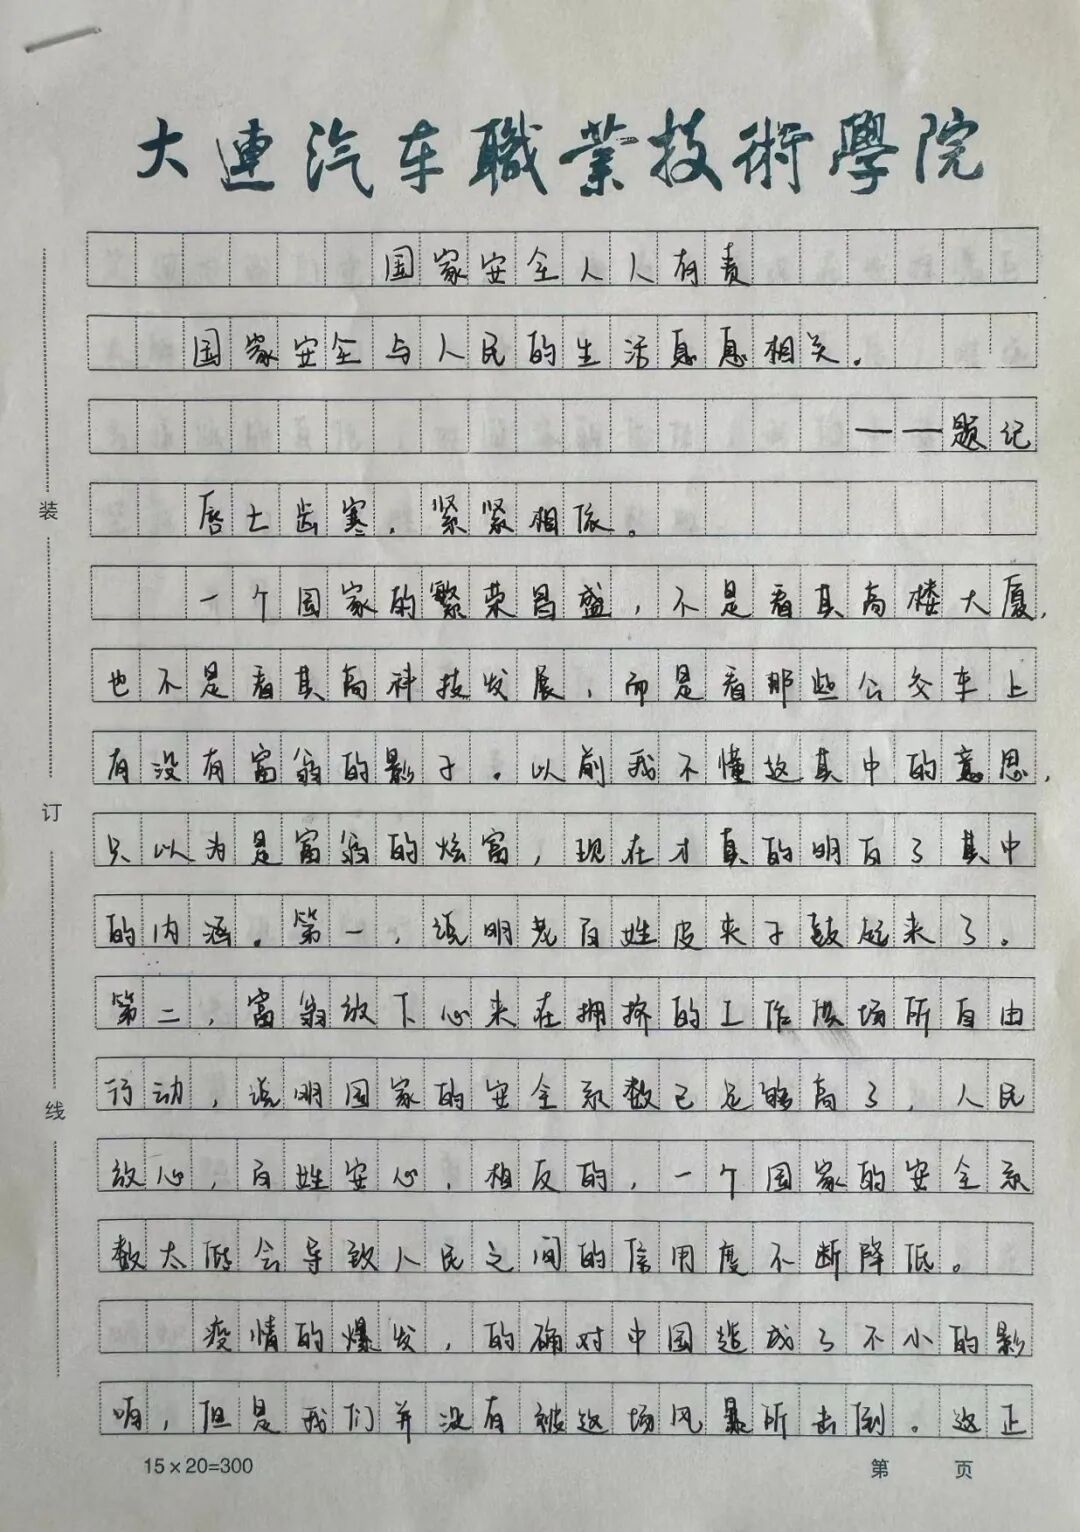 大連汽车職業技術學院
国家安全人人有责
国家安全与人民的生活息息相关.
——题记
唇亡齿寒,紧紧相依。
一个国家的繁荣昌盛,不是看其高楼大厦,
也不是看其高科技发展,而是看那些公交车上
有没有富翁的影子。以前我不懂这其中的意思,
只以为是富翁的炫富,现在才真的明白了其中
的内涵。第一,说明老百姓皮夹子鼓起来了。
第二,富翁放下心来在拥挤的工作供场所自由
行动,说明国家的安全系数已足够高了,人民
放心,百姓安心,相反的,一个国家的安全系
数太低会导致人民之间的信用度不断降低。
疫情的爆发,的确对中国造成了不小的影
响,但是我们并没有被这场风暴所击倒。这正
装
订
线
15×20=300
第 页